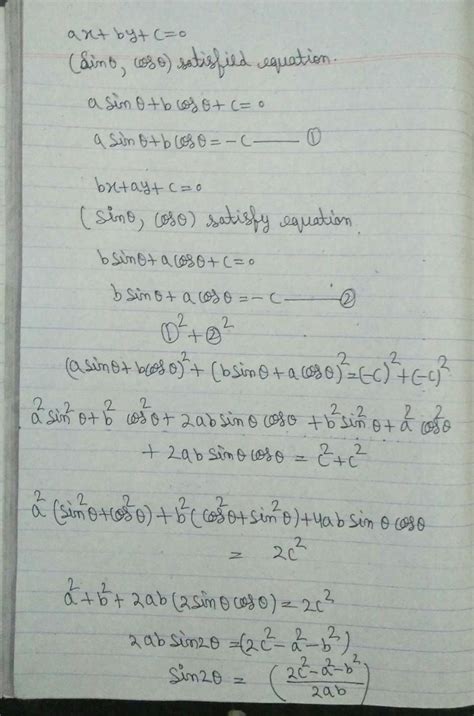 ax + by + c = 0
(sinθ, cosθ) satisfied equation.
a sinθ + b cosθ + c = 0
a sinθ + b cosθ = -c —— ①
bx + ay + c = 0
(sinθ, cosθ) satisfy equation
b sinθ + a cosθ + c = 0
b sinθ + a cosθ = -c —— ②
①² + ②²
(a sinθ + b cosθ)² + (b sinθ + a cosθ)² = (-c)² + (-c)²
a² sin²θ + b² cos²θ + 2ab sinθ cosθ + b² sin²θ + a² cos²θ
+ 2ab sinθ cosθ = c² + c²
a² (sin²θ + cos²θ) + b² (cos²θ + sin²θ) + 4ab sinθ cosθ
= 2c²
a² + b² + 2ab (2 sinθ cosθ) = 2c²
2ab sin2θ = (2c² - a² - b²)
sin2θ = ((2c² - a² - b²)/2ab)